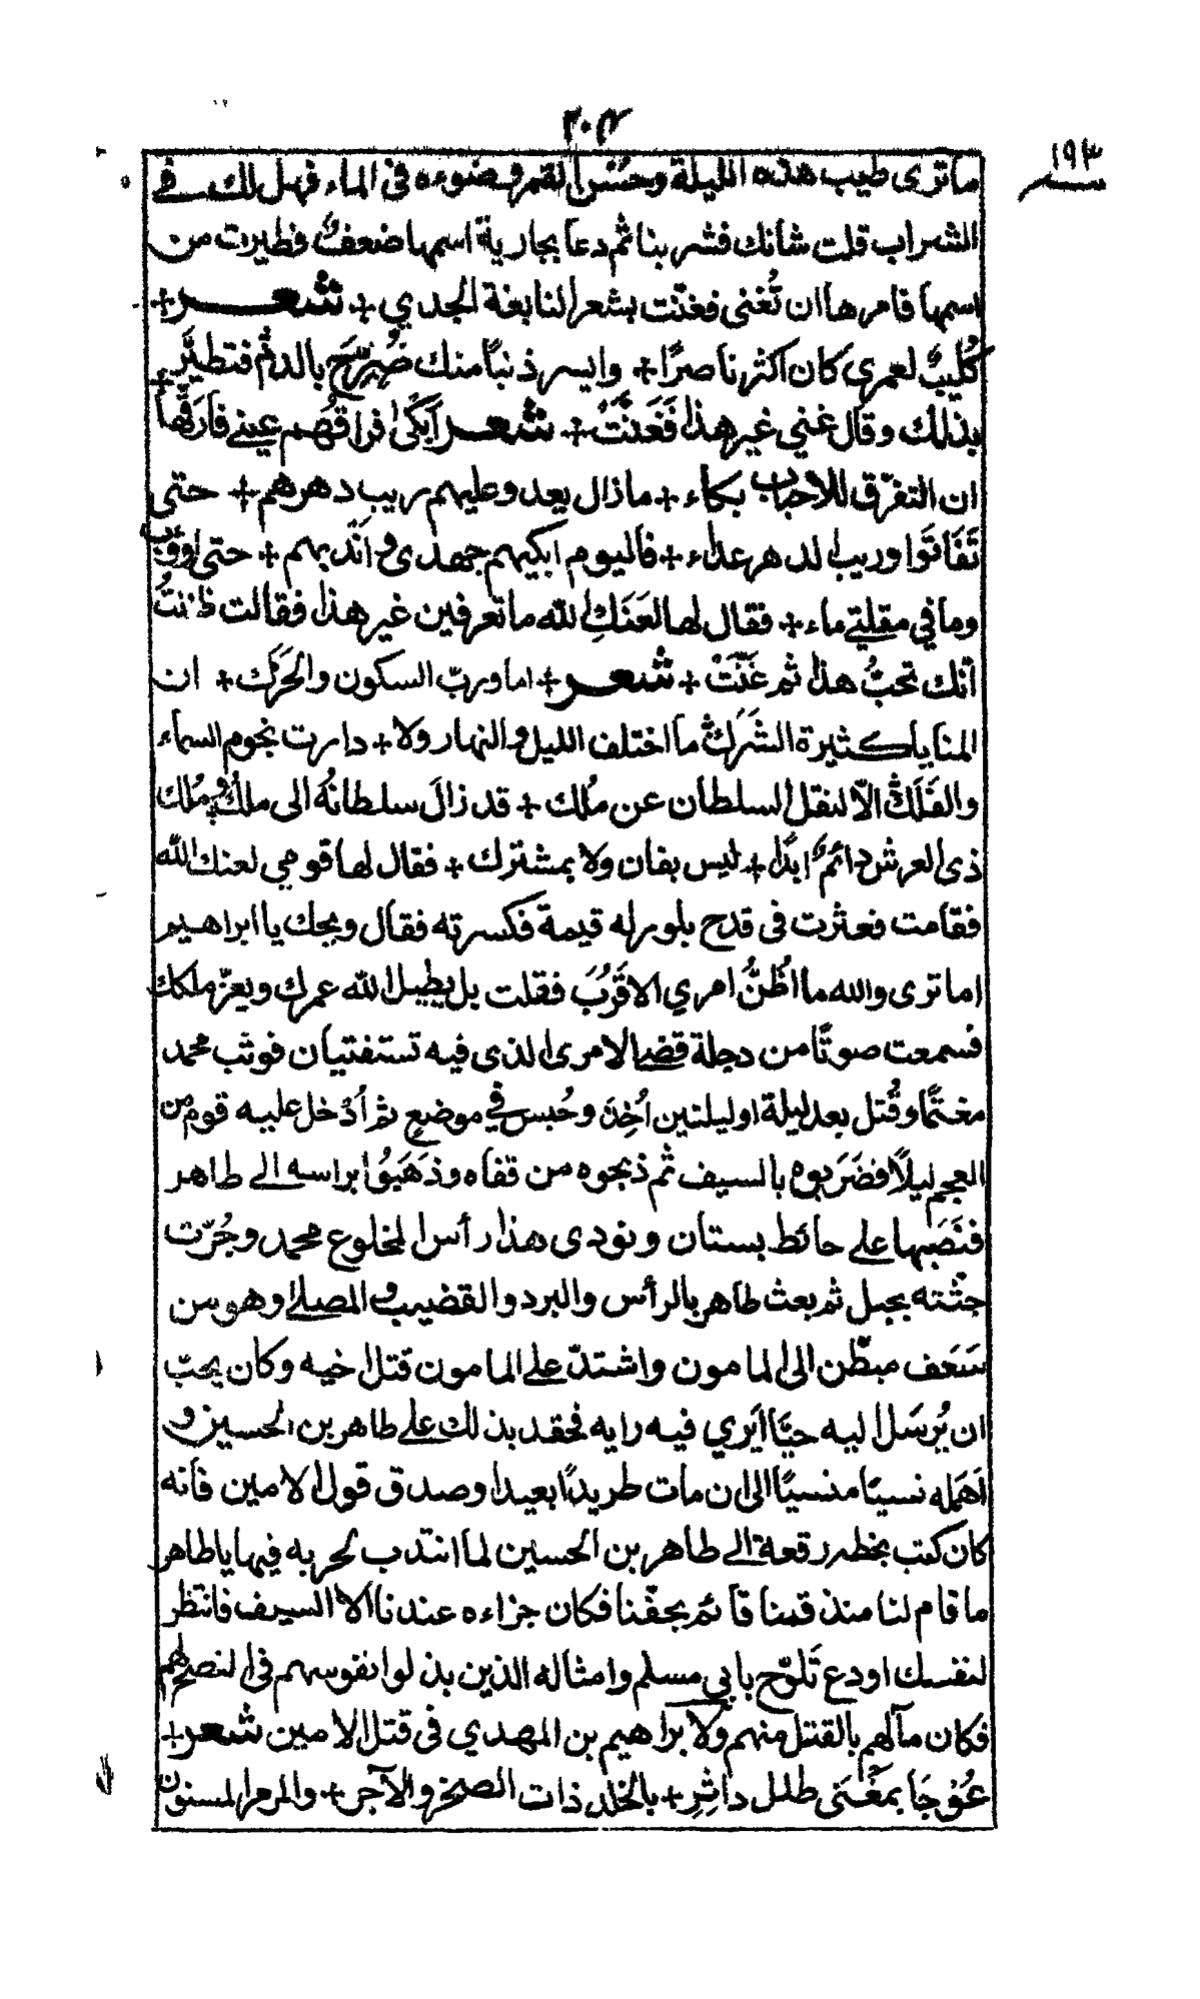 ٣٠٤
١٩٣
ماترى طيب هذه الليلة وحُسْن القمر وضوءه فى الماء فهل لك في
الشراب قلت شأنك فشربنا ثم دعا بجارية اسمها ضعف فطيرت من
اسمها فامرها ان تُغنى فغنّت بشعر النابغة الجعدي + شعر +
كُليبٌ لعمرى كان اكثر ناصرًا + وايسر ذنبًا منك ضُرّجَ بالدم فتطيّر +
بذلك وقال غني غير هذا فَغَنَّتْ + شعر اَبكىٰ فراقُهم عيني فارّقها
ان التفرّق للاحباب بكّاء + مازال يعدو عليهم ريب دهرهم + حتى
تَفَانَوا وريب الدهر عداء + فاليوم ابكيهم جهدى و اندبهم + حتى اووب
وما في مقلتي ماء + فقال لها لَعَنَكِ الله ما تعرفين غير هذا فقالت ظننتُ
أنك تحبُّ هذا ثم غَنّتْ + شعر + اما وربّ السكون والحَرَك + ان
المنايا كثيرة الشَرَك ما اختلف الليل والنهار ولا + دارت نجوم السماء
والفَلَك الّا لنقل السلطان عن مُلك + قد زالَ سلطانُه الى ملك و مُلك
ذى العرش دائمٌ ابدًا + ليس بفان ولا بمشترك + فقال لها قومي لعنك الله
فقامت فعثرت فى قدح بلور له قيمة فكسرته فقال ويحك يا ابراهيم
اما ترى والله ما اظُنُّ امري الا قَرُبَ فقلت بل يطيل الله عمرك ويعزّ ملكك
فسمعت صوتًا من دجلة قضى الامر الذى فيه تستفتيان فوثب محمد
مغتمًا وقُتل بعد ليلة او ليلتين اُخِذ وحُبس في موضع ثم أدخل عليه قوم من
العجم ليلًا فضَرَبوه بالسيف ثم ذبحوه من قفاه وذَهَبُوا براسه الى طاهر
فنَصَبها على حائط بستان ونودى هذا رأس المخلوع محمد وجُرّت
جثّته بحبل ثم بعث طاهر بالرأس والبرد والقضيب و المصلى وهو من
سَعَف مبطّن الى المامون واشتدّ على المامون قتل اخيه وكان يحبّ
ان يُرسَل اليه حيًّا ليَرى فيه رايه فحقد بذلك على طاهر بن الحسين و
اهمله نسيًا منسيًا الى ان مات طريدًا بعيدا وصدق قول الامين فانه
كان كتب بخطه رقعة الى طاهر بن الحسين لما انتدب لحربه فيها يا طاهر
ما قام لنا منذ قمنا قائم بحقّنا فكان جزاءه عندنا الا السيف فانظر
لنفسك او دع تَلوّح بابي مسلم وامثاله الذين بذلوا نفوسهم فى النصح لهم
فكان مآلهم بالقتل منهم ولابراهيم بن المهدي فى قتل الامين شعر +
عُوْجَا بمَغْنَى طلل داثِرِ + بالخلد ذات الصخر والآجر + والمرمر المسنون